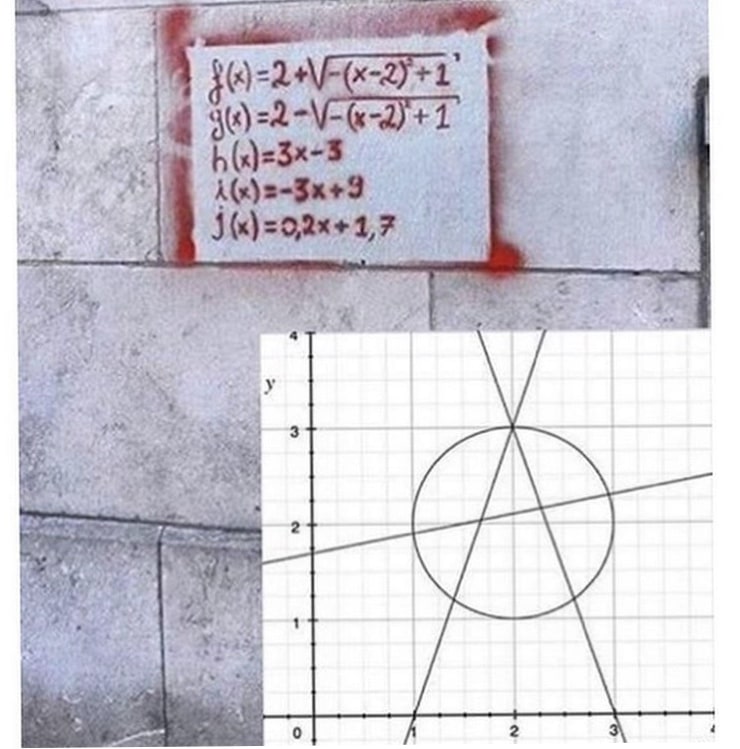 f(x)=2+√-(x-2)²+1'
g(x)=2-√-(x-2)²+1'
h(x)=3x-3
i(x)=-3x+9
j(x)=0,2x+1,7
4
y
3
2
1
0 1 2 3 4